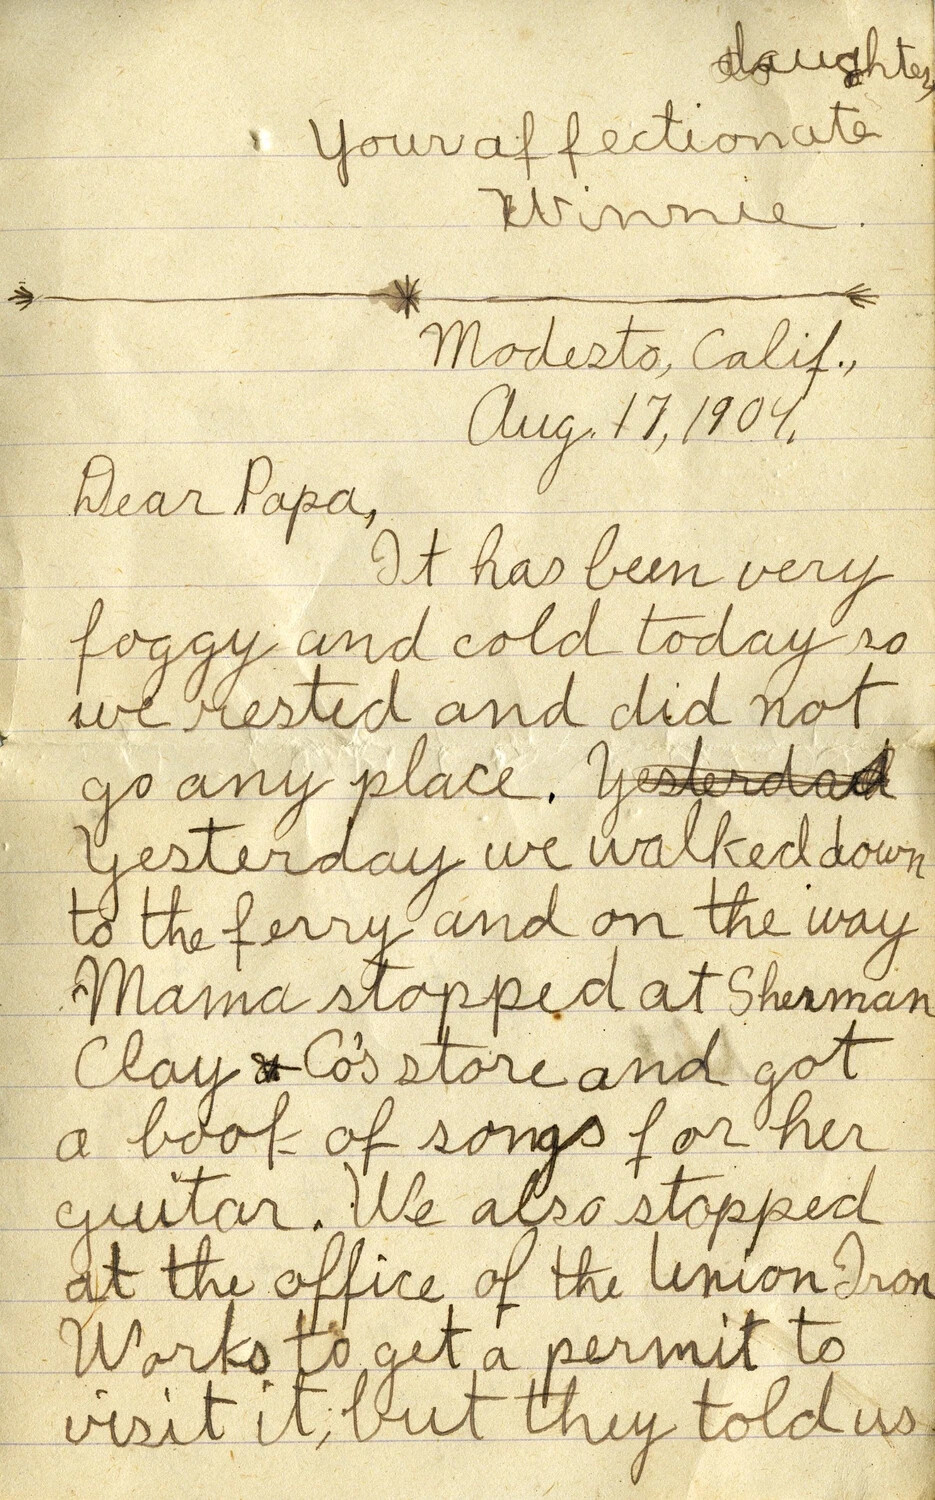 daughter,
Your affectionate
Winnie.
Modesto, Calif.,
Aug. 17, 1904.
Dear Papa,
It has been very
foggy and cold today so
we rested and did not
go any place. Yesterdad
Yesterday we walked down
to the ferry and on the way
Mama stopped at Sherman
Clay & Co's store and got
a book of songs for her
guitar. We also stopped
at the office of the Union Iron
Works to get a permit to
visit it, but they told us